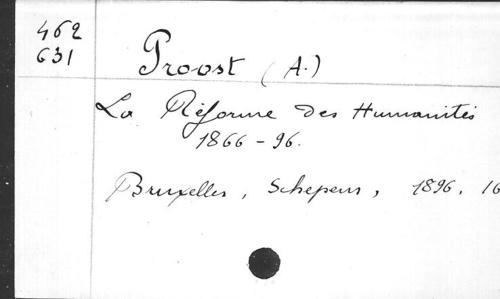 462
631
Proost (A.)
La Réforme des Humanités
1866-96.
Bruxelles, Schepens, 1896, 16